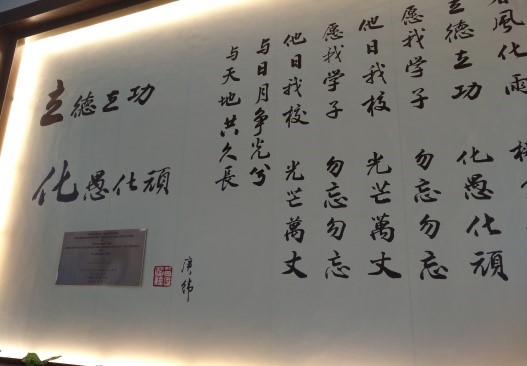 風化雨
立德立功 化愚化頑
愿我学子 勿忘勿忘
他日我校 光芒萬丈
愿我学子 勿忘勿忘
他日我校 光芒萬丈
与日月争光兮
与天地共久長
立德立功
化愚化頑